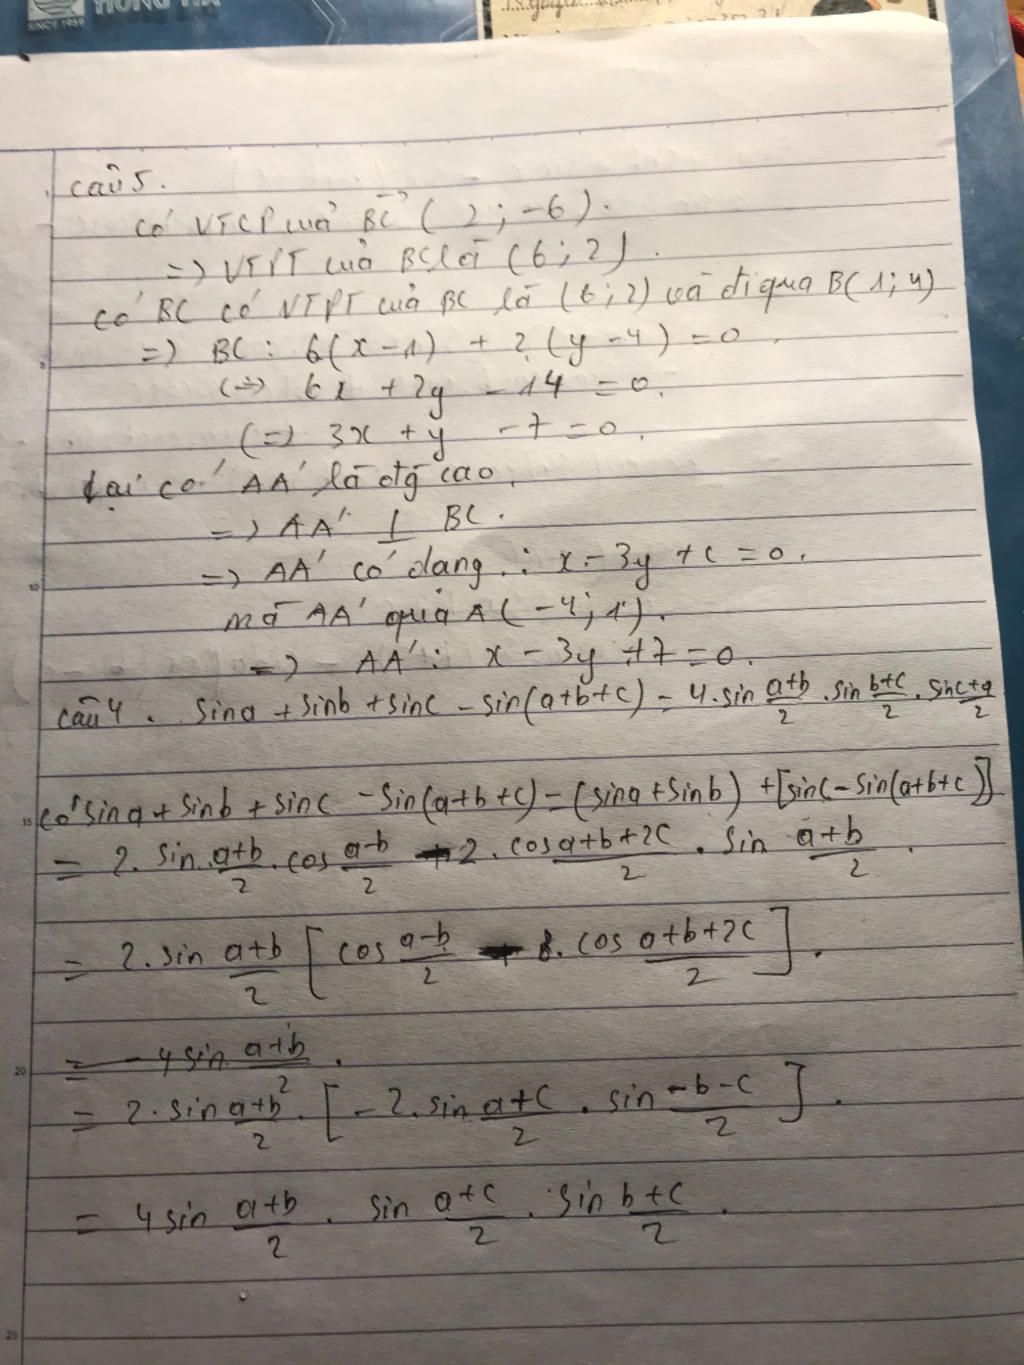 HONG HA
SINCE 1959
câu 5.
có VTCP của BC (2; -6).
=> VTPT của BC là (6; 2).
có BC có VTPT của BC là (6; 2) và đi qua B(1; 4)
=> BC: 6(x-1) + 2(y-4) = 0.
(=) 6x + 2y - 14 = 0.
(=) 3x + y - 7 = 0.
Lại có AA' là đg cao.
=> AA' ⊥ BC.
=> AA' có dạng: x - 3y + c = 0.
mà AA' qua A(-4; 1).
=> AA': x - 3y + 7 = 0.
câu 4. sina + sinb + sinc - sin(a+b+c) = 4.sin (a+b)/2 . sin (b+c)/2 . sin (c+a)/2
có sina + sinb + sinc - sin(a+b+c) = (sina + sinb) + [sinc - sin(a+b+c)]
= 2. sin (a+b)/2 . cos (a-b)/2 - 2. cos (a+b+2c)/2 . sin (a+b)/2 .
= 2. sin (a+b)/2 [cos (a-b)/2 - cos (a+b+2c)/2].
= - 4 sin (a+b)/2 .
= 2. sin (a+b)/2 . [-2. sin (a+c)/2 . sin (-b-c)/2].
= 4 sin (a+b)/2 . sin (a+c)/2 . sin (b+c)/2 .